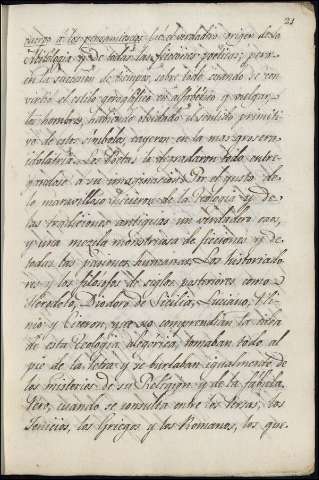 21
cuerpo á los pensamientos. Es el verdadero origen de la
Mitología, y de todas las ficciones poéticas; pero
en la sucesion de tiempos, sobre todo, cuando se con
virtió el estilo geroglífico en alfabético y vulgar,
los hombres, habiendo olvidado el sentido primiti
vo de estos símbolos, cayeron en la mas grosera
idolatría. Los Poetas la degradaron todo entre
gandose a su imaginacion. Por el gusto de
lo maravilloso hicieron de la Teología y de
las tradiciones antiguas un verdadero caos,
y una mezcla monstruosa de ficciones y de
todas las pasiones humanas. Los historiado
res y los filósofos de siglos posteriores como
Herodoto, Diodoro de Sicilia, Luciano, Pli
nio y Ciceron, que no comprendian la idea
de esta Teología alegórica, tomaban todo al
pie de la letra y se burlaban igualmente de
los misterios de su Religion y de la fábula.
Pero, cuando se consulta entre los Persas, los
Fenicios, los Griegos y los Romanos, los que